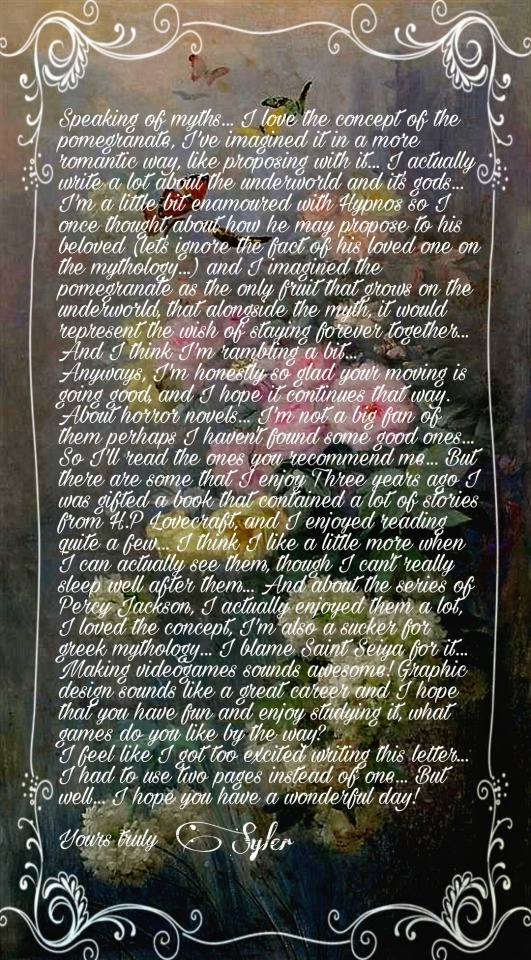 Speaking of myths... I love the concept of the
pomegranate, I've imagined it in a more
romantic way, like proposing with it... I actually
write a lot about the underworld and its gods...
I'm a little bit enamoured with Hypnos so I
once thought about how he may propose to his
beloved (lets ignore the fact of his loved one on
the mythology...) and I imagined the
pomegranate as the only fruit that grows on the
underworld, that alongside the myth, it would
represent the wish of staying forever together...
And I think I'm rambling a bit...
Anyways, I'm honestly so glad your moving is
going good, and I hope it continues that way.
About horror novels... I'm not a big fan of
them perhaps I havent found some good ones...
So I'll read the ones you recommend me... But
there are some that I enjoy Three years ago I
was gifted a book that contained a lot of stories
from H.P Lovecraft, and I enjoyed reading
quite a few... I think I like a little more when
I can actually see them, though I cant really
sleep well after them... And about the series of
Percy Jackson, I actually enjoyed them a lot,
I loved the concept, I'm also a sucker for
greek mythology... I blame Saint Seiya for it...
Making videogames sounds awesome! Graphic
design sounds like a great career and I hope
that you have fun and enjoy studying it, what
games do you like by the way?
I feel like I got too excited writing this letter...
I had to use two pages instead of one... But
well... I hope you have a wonderful day!
Yours truly Syler